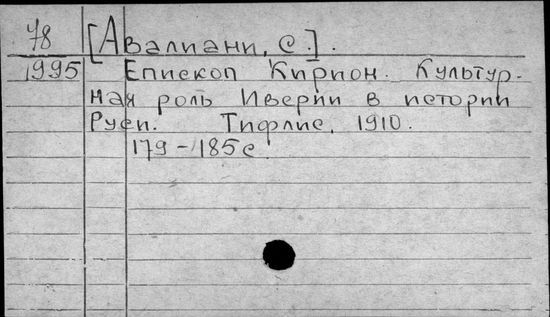 78
[Авалиани, С.].
1995
Епископ Кирион. Культур-
ная роль Иверии в истории
Руси. Тифлис, 1910.
179-185с.